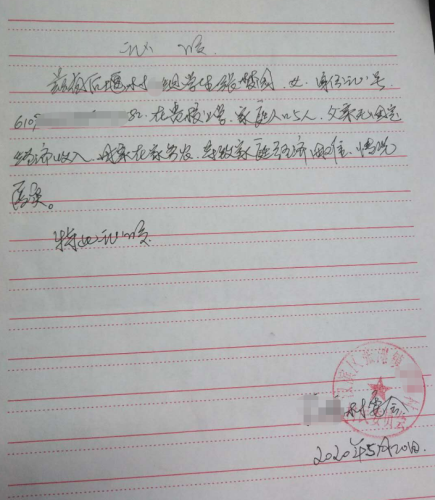 证明
兹有后堰村 组学生张 ,女,身份证号
6109 82.在贵校上学,家庭人口5人,父亲无固定
经济收入,母亲在家务农,导致家庭经济困住,情况
属实。
特此证明
村委会
2020年5月20日.